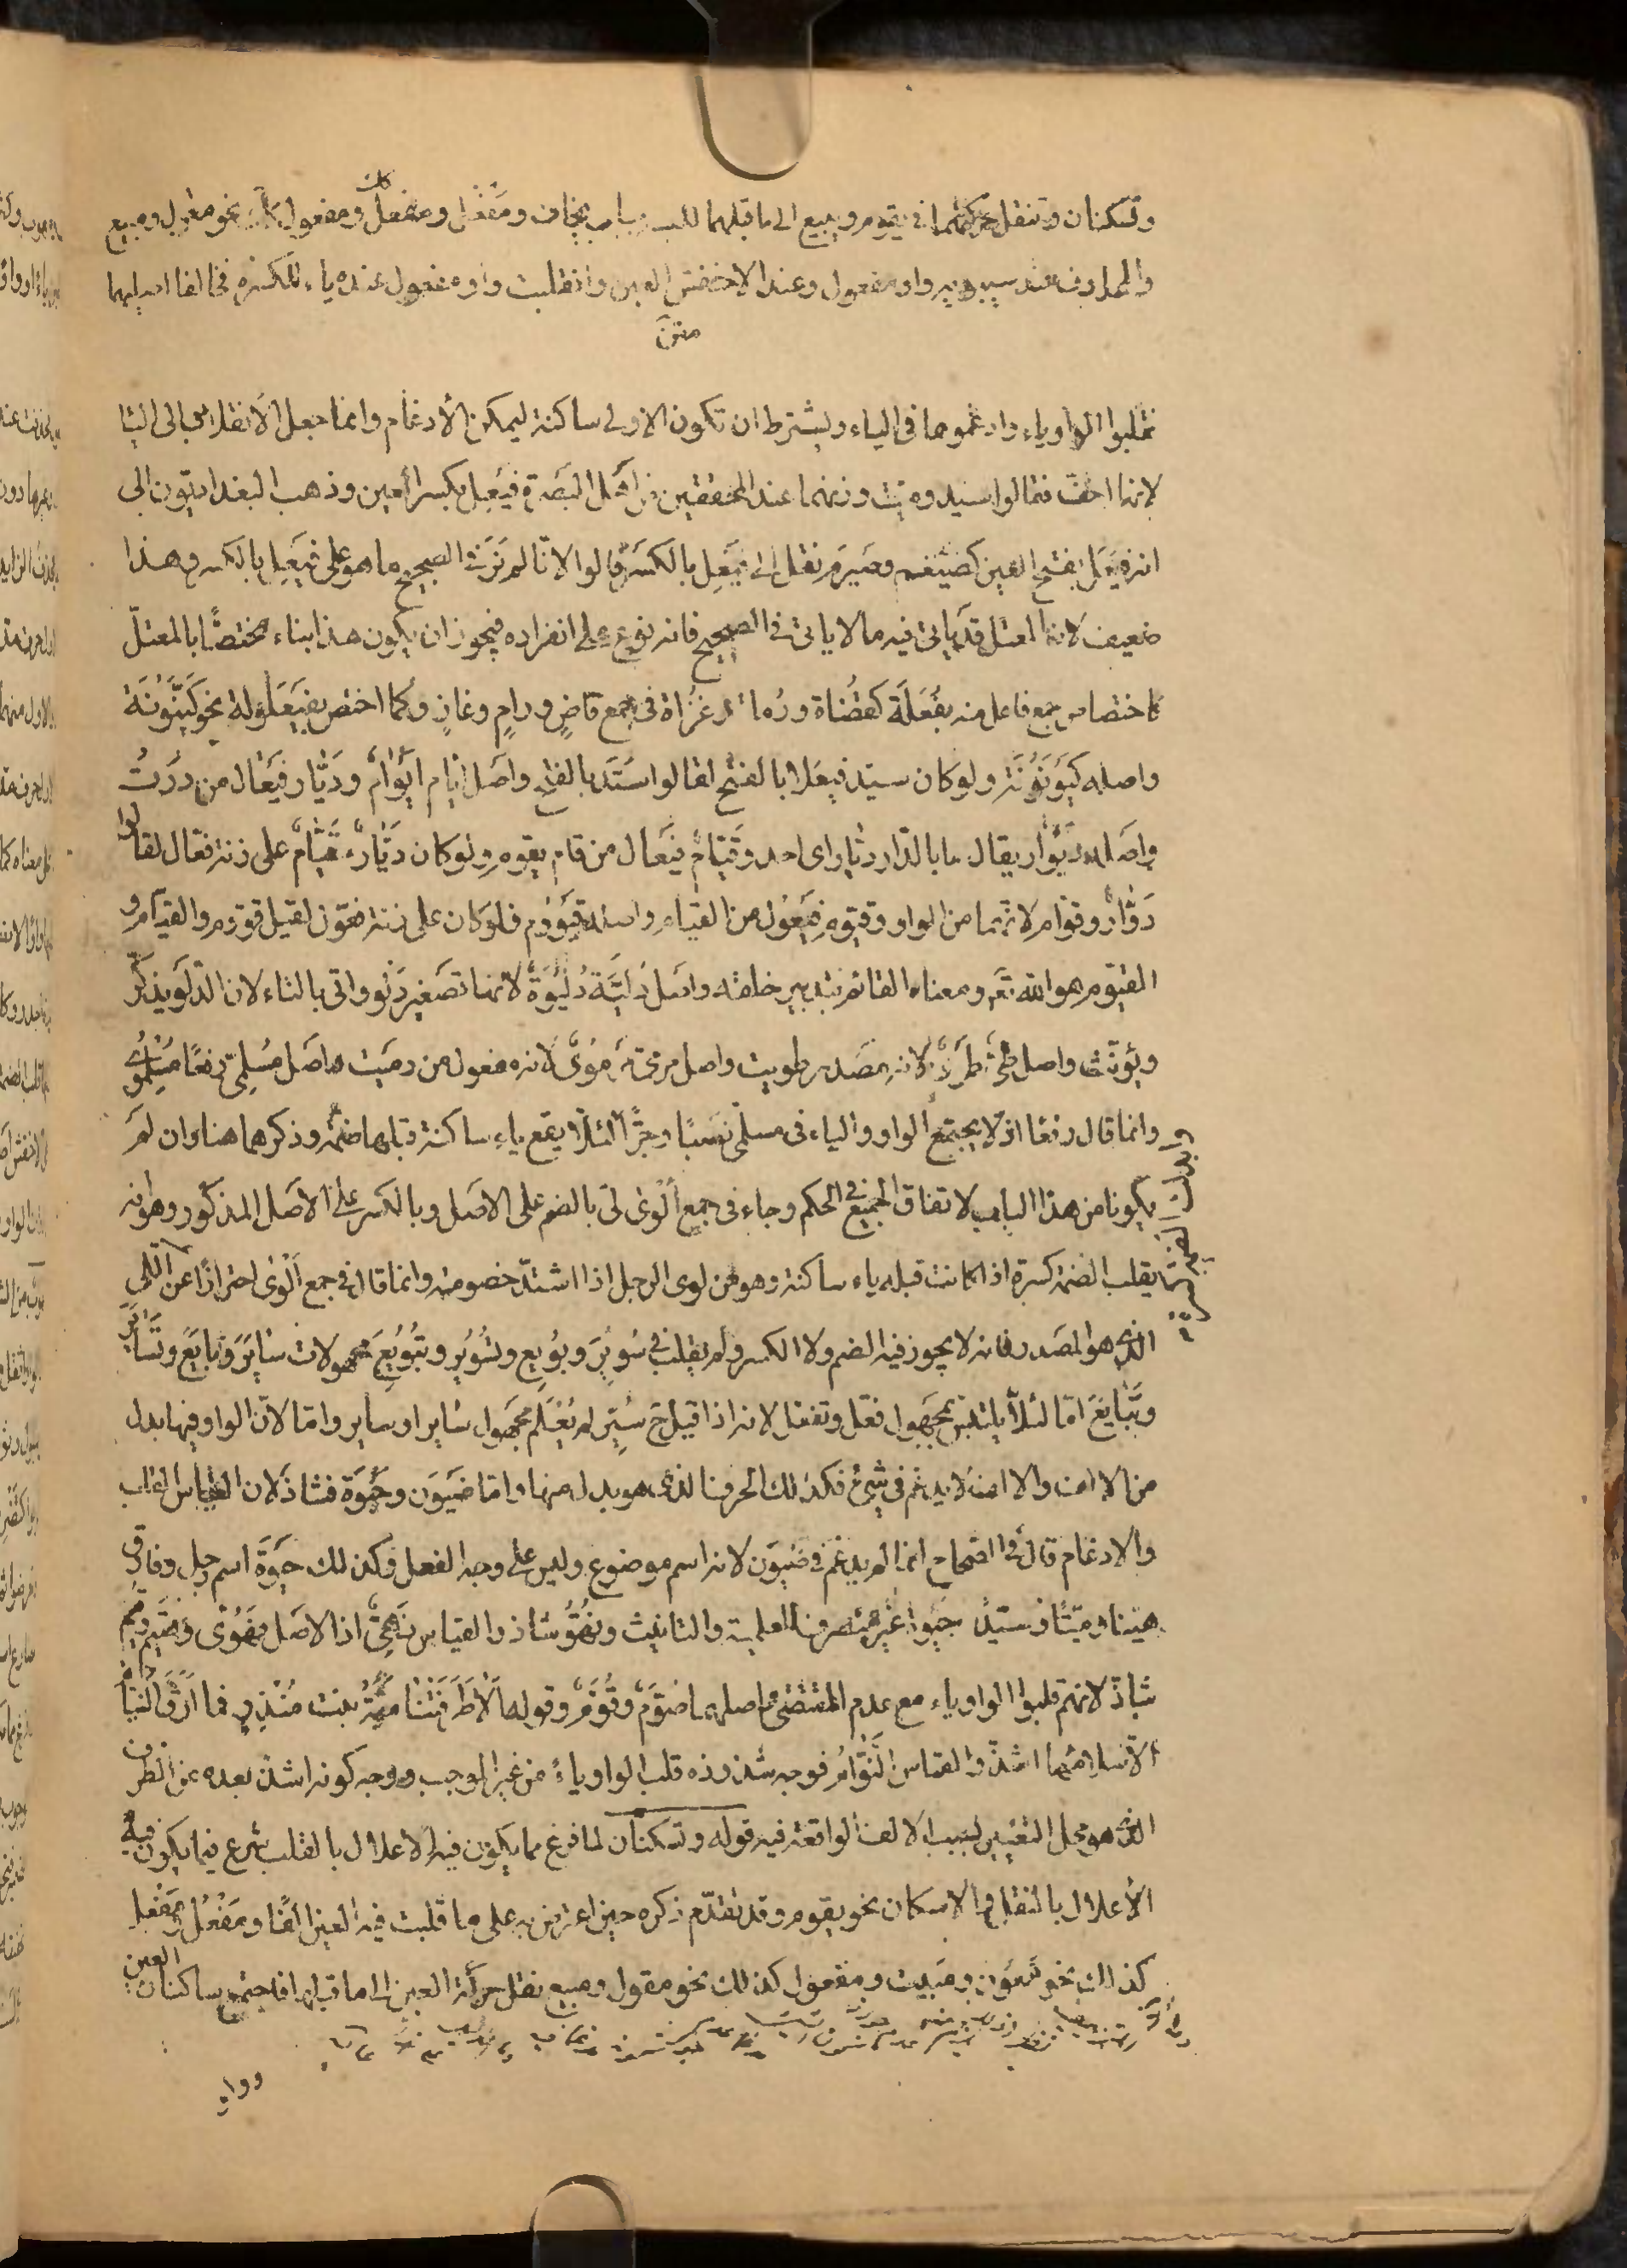 وتسكنان وتنقل حركتهما فى يقوم ويبيع الى ما قبلهما للبسه بباب يخاف ومَفْعُل ومفعِل كذلك ومفعول نحو مقول ومبيع
والمحذوف عند سيبويه واو مفعول وعند الاخفش العين وانقلبت واو مفعول عنده ياء للكسرة فخالفا اصليهما
متن
فقلبوا الواو ياء وادغموها فى الياء ويشترط ان تكون الاولى ساكنة ليمكن الأدغام وانما جعل الأنقلاب الى اليا
لانها اخف فقالوا سيد وميّت وزنهما عند المحققين من اهل البَصرة فَيعِل بكسر العين وذهب البغداديون الى
انه فَيعَل بفتح العين كضَيغم وصَيرَم نقل الى فَيعِل بالكسر قالوا لانّا لم نَرَ فى الصحيح ما هو على فَيعِل بالكسر وهذا
ضعيف لان المعتل قد يأتى فيه ما لا يأتى فى الصحيح فانه نوع على انفراده فيجوز ان يكون هذا بناء مختصًّا بالمعتلّ
كاختصاص جمع فاعل منه بفُعَلَة كقُضاة ورُماة وغُزاة فى جمع قاضٍ ورامٍ وغازٍ وكما اختص بفَيعَلولة نحو كَيَّنُونَة
واصله كَيوَنُونَة ولو كان سيّد فيعَلا بالفتح لقالوا سَيَّد بالفتح واصل ايّام أيوَام وديّار فَيعَال من دُرتُ
واصله دَيوَار يقال ما بالدّار ديّار اى احد وقيّام فيعال من قام يقوم ولو كان ديّار وقيّام على زنة فعّال لقالوا
دوّار وقوّام لانهما من الواو وقيّوم فَيعُول من القيام واصله قَيوُوم فلو كان على زنة فعّول لقيل قوّوم والقيّام و
القيّوم هو الله تعـ ومعناه القائم بتدبير خلقه واصل دُلَيّة دُلَيوَة لانها تصغير دَلو واتى بالتاء لان الدّلو يذكّر
ويؤنّث واصل طَىّ طَوى لانه مصدر طويت واصل مرمىّ مَرمُوى لانه مفعول من رميت واصل مُسلِمىّ رفعًا مُسلِمُوى
وانما قال رفعا اذ لا يجتمع الواو والياء فى مسلمىّ نصبًا وجرًّا لئلّا يقع ياء ساكنة قبلها ضمّة وذكرهما هنا وان لم
يكونا من هذا الباب لاتفاق الجميع فى الحكم وجاء فى جمع ألوى لىّ بالضم على الاصل وبالكسر على الاصل المذكور وهو انه
يقلب الضمة كسرة اذا كانت قبله ياء ساكنة وهو من لوى الرجل اذا اشتدّ خصومته وانما قال فى جمع ألوى احترازًا عن اللّى
الذى هو المصدر فانه لا يجوز فيه الضم ولا الكسر ولم يقلب فى سُويِرَ وبُويِع وتُسُويِر وتُبُويِعَ مجهولات سَايَرَ وبَايَعَ وتَسَايَرَ
وتَبَايَعَ امّا لئلّا يلتبس بمجهول فعّل وتفعّل لانه اذا قيل ح سُيّر لم يُعلَم مجهول سَاير او سيّر وامّا لانّ الواو فيها بدل
من الالف والالف لا يدغم فى شئ فكذلك الحرف الذى هو بدل منها وامّا ضَيوَن وحَيوَة فشاذ لان القياس القلب
والادغام قال فى الصحاح انما لم يدغم فى ضَيوَن لانه اسم موضوع وليس على وجه الفعل وكذلك حَيوَة اسم رجل وفارق
هيّنا وميّتًا وسيّد حَيوة غير منصرف للعلمية والتانيث ونَهُوّ شاذ والقياس نَهِىّ اذ الاصل نَهُوى وصُيّم وقُيّم
شاذّ لانهم قلبوا الواو ياء مع عدم المقتضى واصلهما صُوّم وقُوّم وقوله ألا طَرَقَتنا ميّةُ بنت مُنذِرٍ فما أرّق النُيّامَ
الّا سلامُها اشذّ والقياس النُوّام فوجه شذوذه قلب الواو ياءً من غير الموجب ووجه كونه اشذ بعده عن الطرف
الذى هو محل التغيير لسبب الالف الواقعة فيه قوله وتسكنان لما فرغ مما يكون فيه الاعلال بالقلب شرع فيما يكون فيه
الأعلال بالنقل والاسكان نحو يقوم وقد تقدّم ذكره حين اعترض به على ما قلبت فيه العين الفًا ومَفعُل ومَفعِل
كذلك نحو مَعُون ومَبيت ومفعول كذلك نحو مقول ومبيع نقل حركة العين الى ما قبلها فاجتمع ساكنان العين
وواو